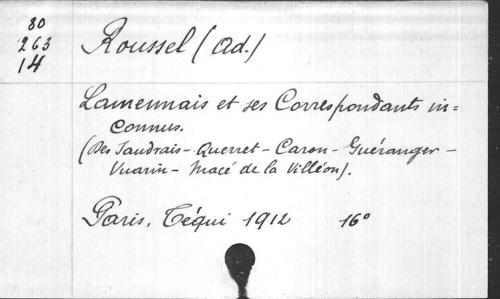 80
263
14
Roussel (Ad.)
Lamennais et ses Correspondants in=
connus.
(Des Saudrais - Querret - Caron - Guéranger -
Vuarin - Macé de la Villéon).
Paris, Téqui 1912 16°